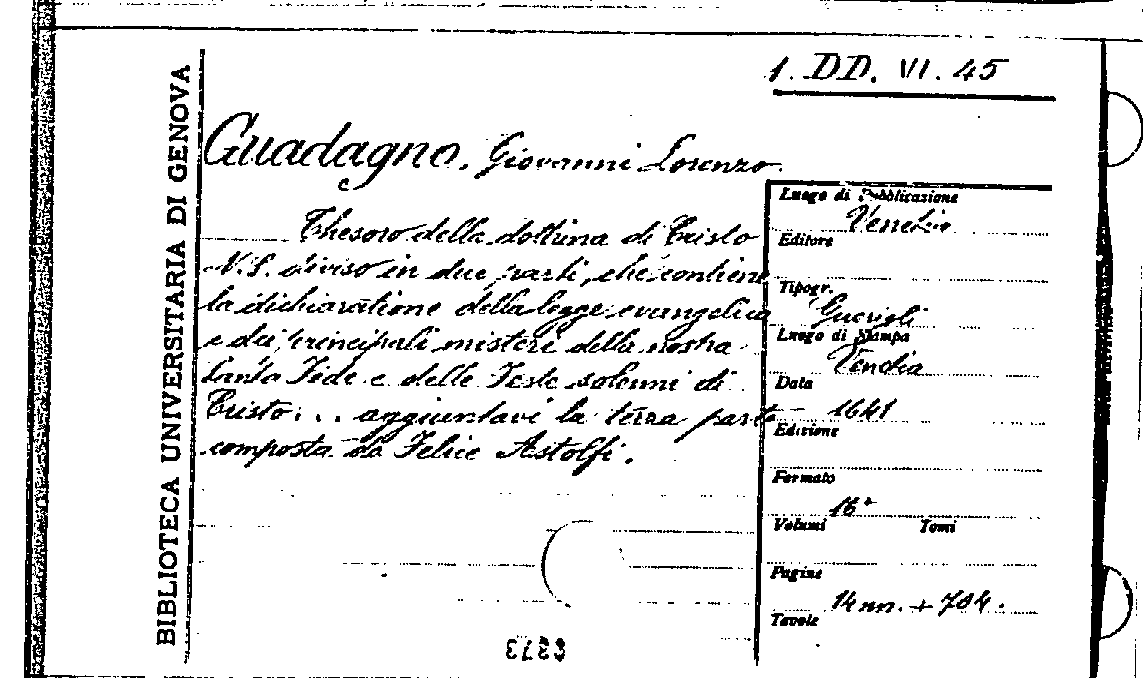 1. DD. VI. 45
BIBLIOTECA UNIVERSITARIA DI GENOVA
Guadagno, Giovanni Lorenzo.
Thesoro della dottrina di Cristo
N. S. diviso in due parti, che contiene
la dichiaratione della legge evangelica
e dei principali misteri della nostra
Santa Fede e delle Feste solenni di
Cristo... aggiuntavi la terza parte
composta da Felice Astolfi.
Luogo di Pubblicazione
Venezia
Editore
Tipogr.
Guerigli
Luogo di Stampa
Venezia
Data
1641
Edizione
Formato
16°
Volumi Tomi
Pagine
14 nn. + 704.
Tavole